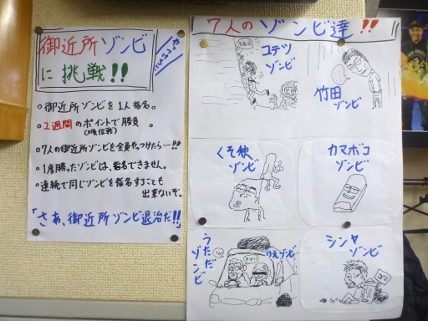 御近所ゾンビ
に挑戦!!
○御近所ゾンビを1人指名。
○2週間のポイントで勝負
(順位戦)
○7人の御近所ゾンビを全員やっつけたら…!!
○1度勝ったゾンビは、指名できません。
○連続で同じゾンビを指名することも
出来ないぞ。
「さあ、御近所ゾンビ退治だ!!」
7人のゾンビ達!!
コテツ
ゾンビ
竹田
ゾンビ
ゾンビ
カマボコ
ゾンビ
うただ
ゾンビ
りえゾンビ
シンヤ
ゾンビ